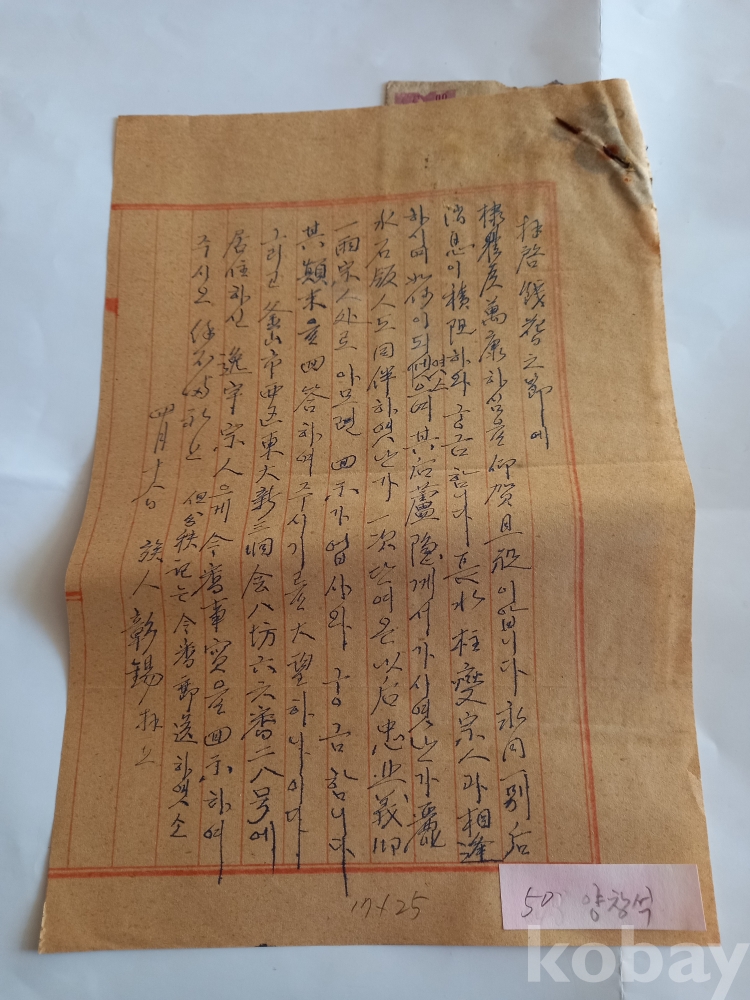 拜啓 餞春之節에
棣豊度萬康하심을 仰賀且祝이올시다 永同一別后
消息이 積阻하와 궁금합니다 長水 柱燮宗人과 相逢
하시며 如何이 되엿아오며 其后 蘆隱께서 가시엿난가 麗
水 石顀人도 同伴하엿난가 一次 단여온 以后 忠 義 
一兩宗人처로 아모련 回示가 업사와 궁금합니다
其顛末을 回答하여 주시기를 大望하나이다
그리고 釜山市西区東大新三洞会八坊六六番二八号에
居住하신 逸宇宗人의게 今番事實을 回示하여
주시오 餘不備礼上 但 秩記는 今番郵送하엿소
四月十 日 族人 彰錫 拜上
17×25
50 양창석
kobay